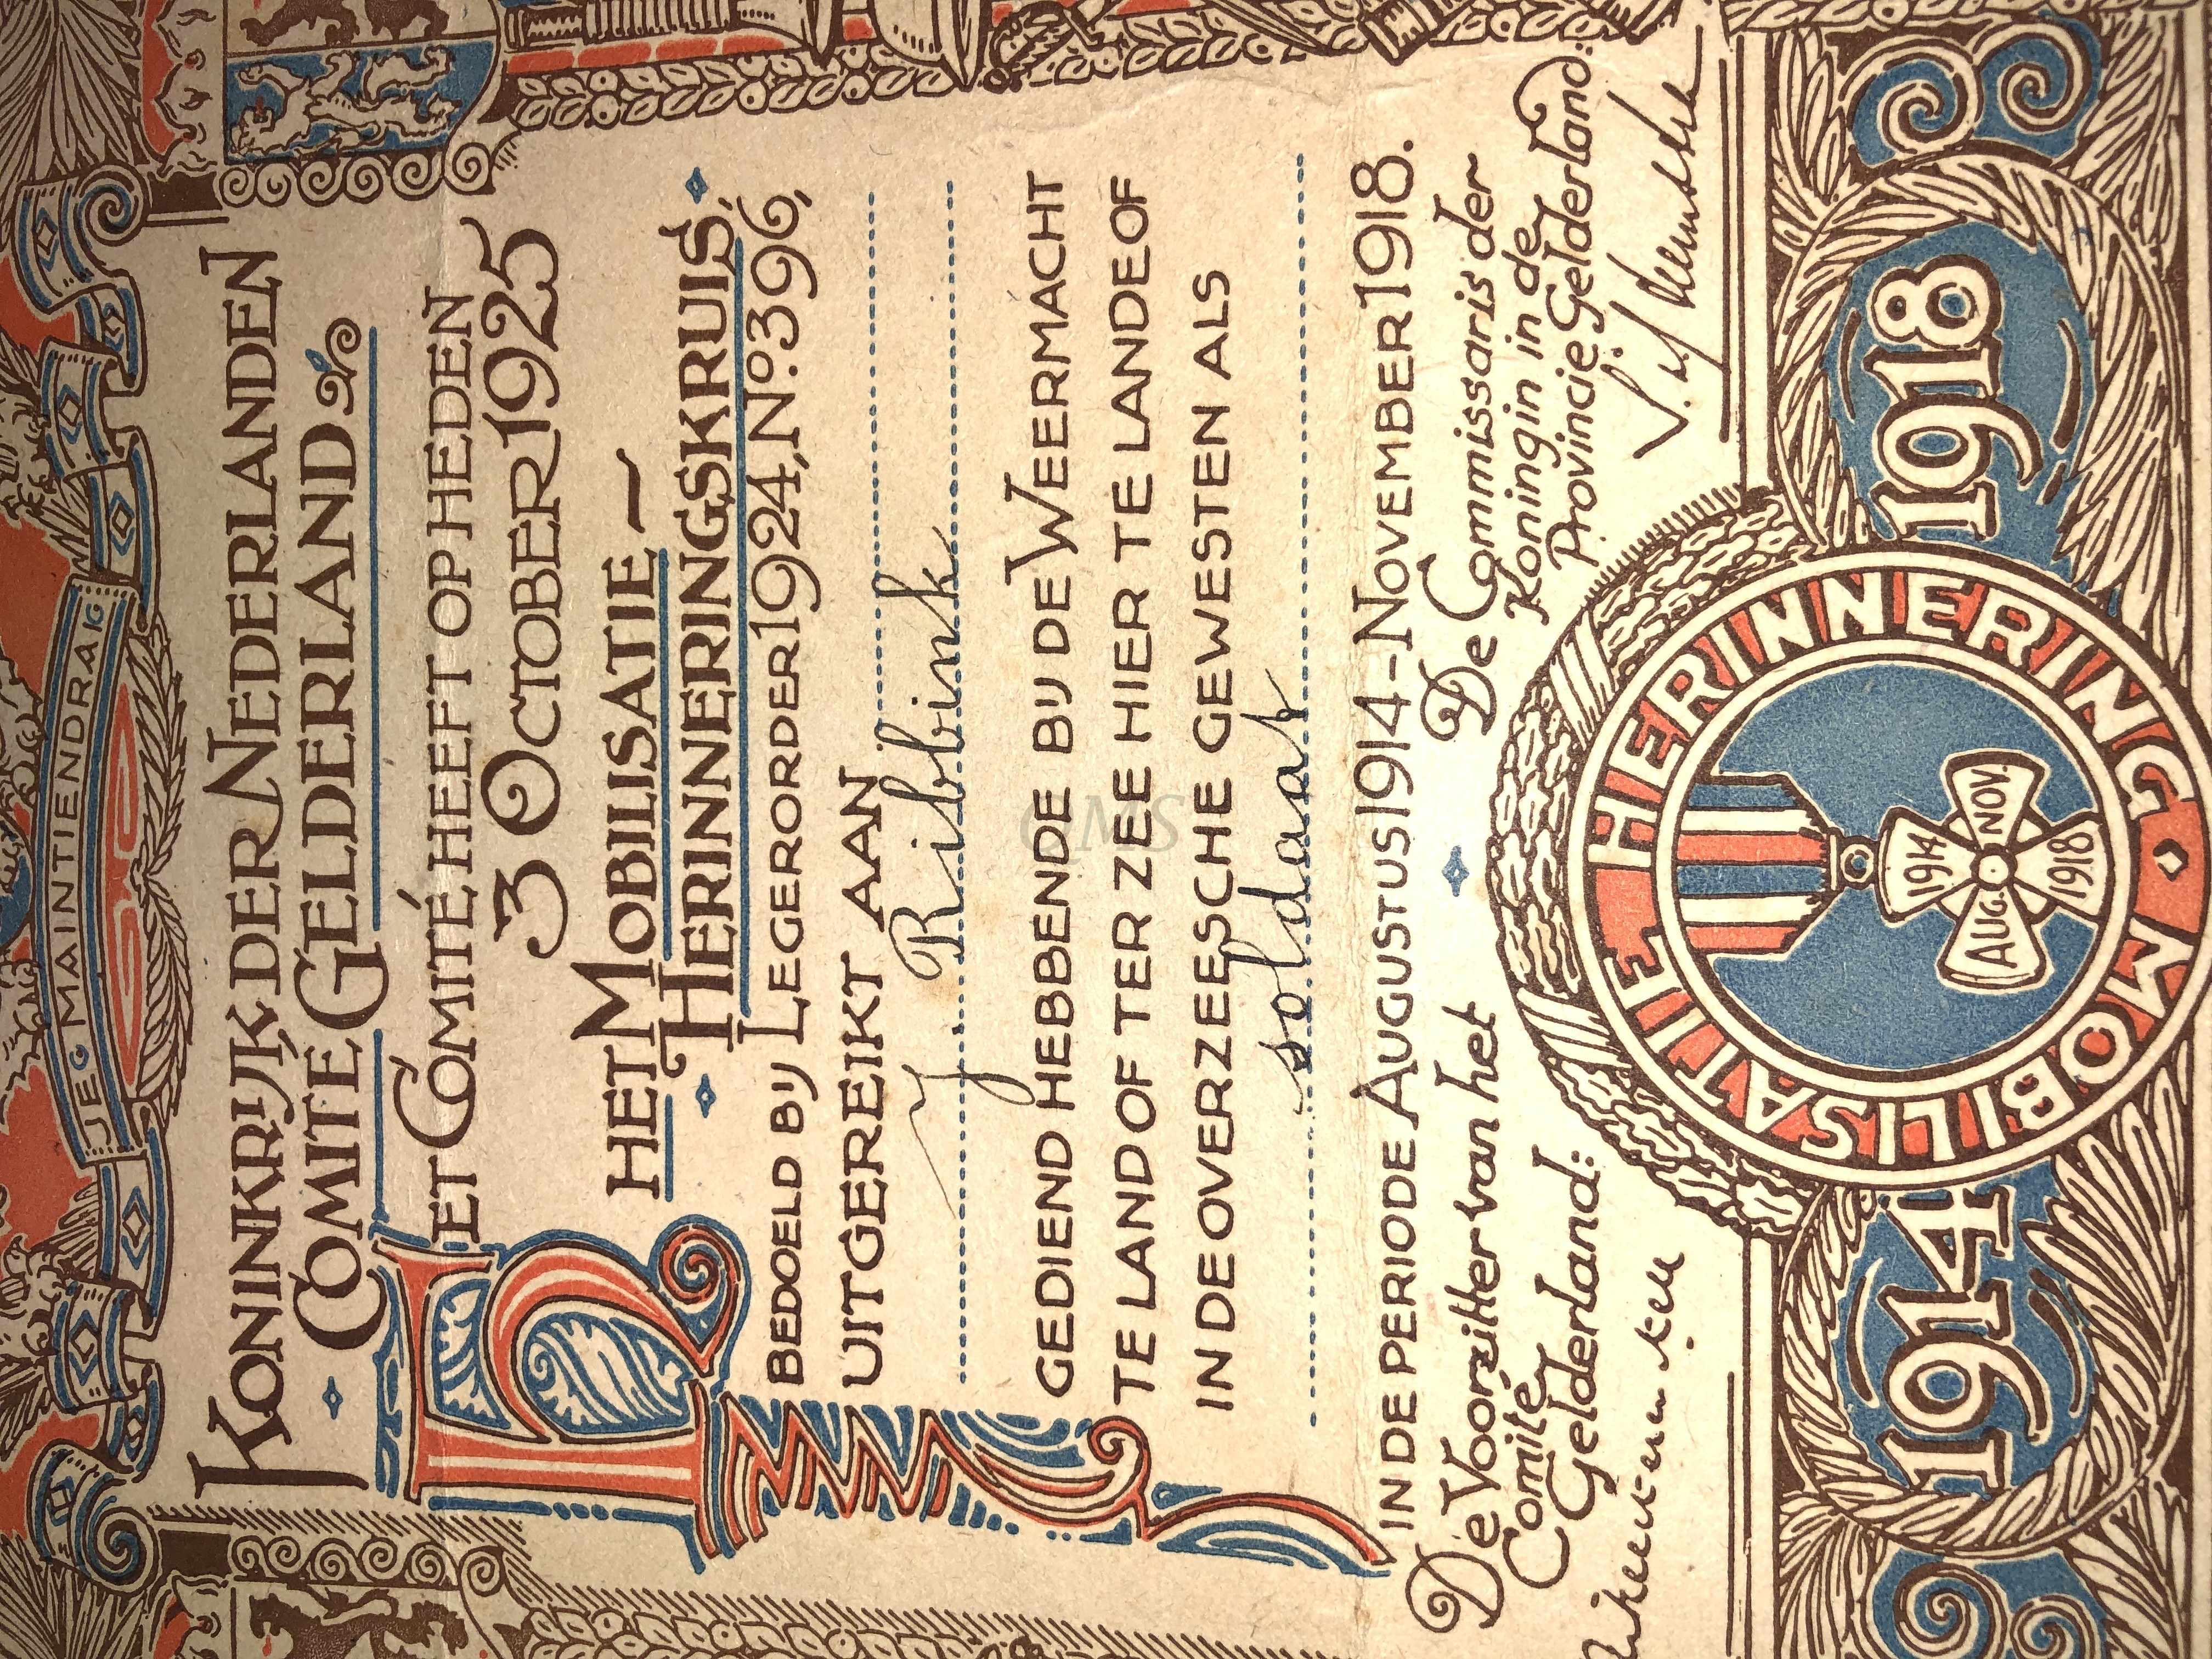 JEG MAINTIENDRAIG
KONINKRIJK DER NEDERLANDEN
COMITE GELDERLAND
HET COMITÉ, HEEFT OP HEDEN
3 OCTOBER 1925
HET MOBILISATIE-
HERINNERINGSKRUIS,
BEDOELD BIJ LEGERORDER 1924, No. 396,
UITGEREIKT AAN
J. Ribbink
GEDIEND HEBBENDE BIJ DE WEERMACHT
TE LAND OF TER ZEE HIER TE LANDE OF
IN DE OVERZEESCHE GEWESTEN ALS
soldaat
IN DE PERIODE AUGUSTUS 1914 - NOVEMBER 1918.
De Voorzitter van het
Comité
Gelderland:
De Commissaris der
Koningin in de
Provincie Gelderland:
1914
MOBILISATIE HERINNERING
1914
AUG. NOV.
1918
1918
QMS